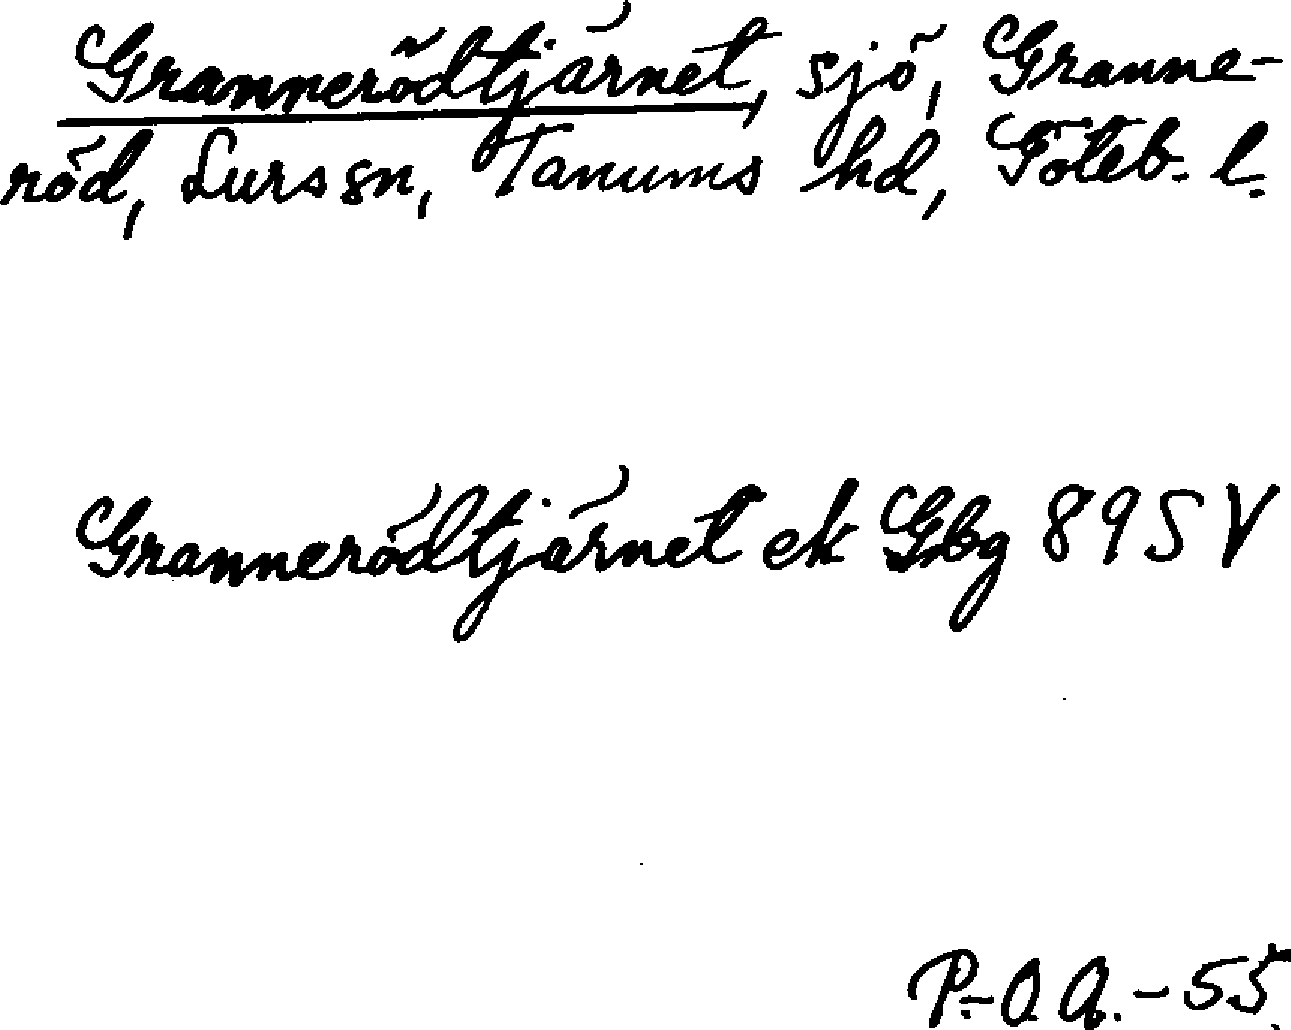 Grannerödtjärnet, sjö, Granne-
röd, Lurs sn, Tanums hd, Göteb. l.
Grannerödtjärnet ek Gbg 895 V
P.-O. A. -55.